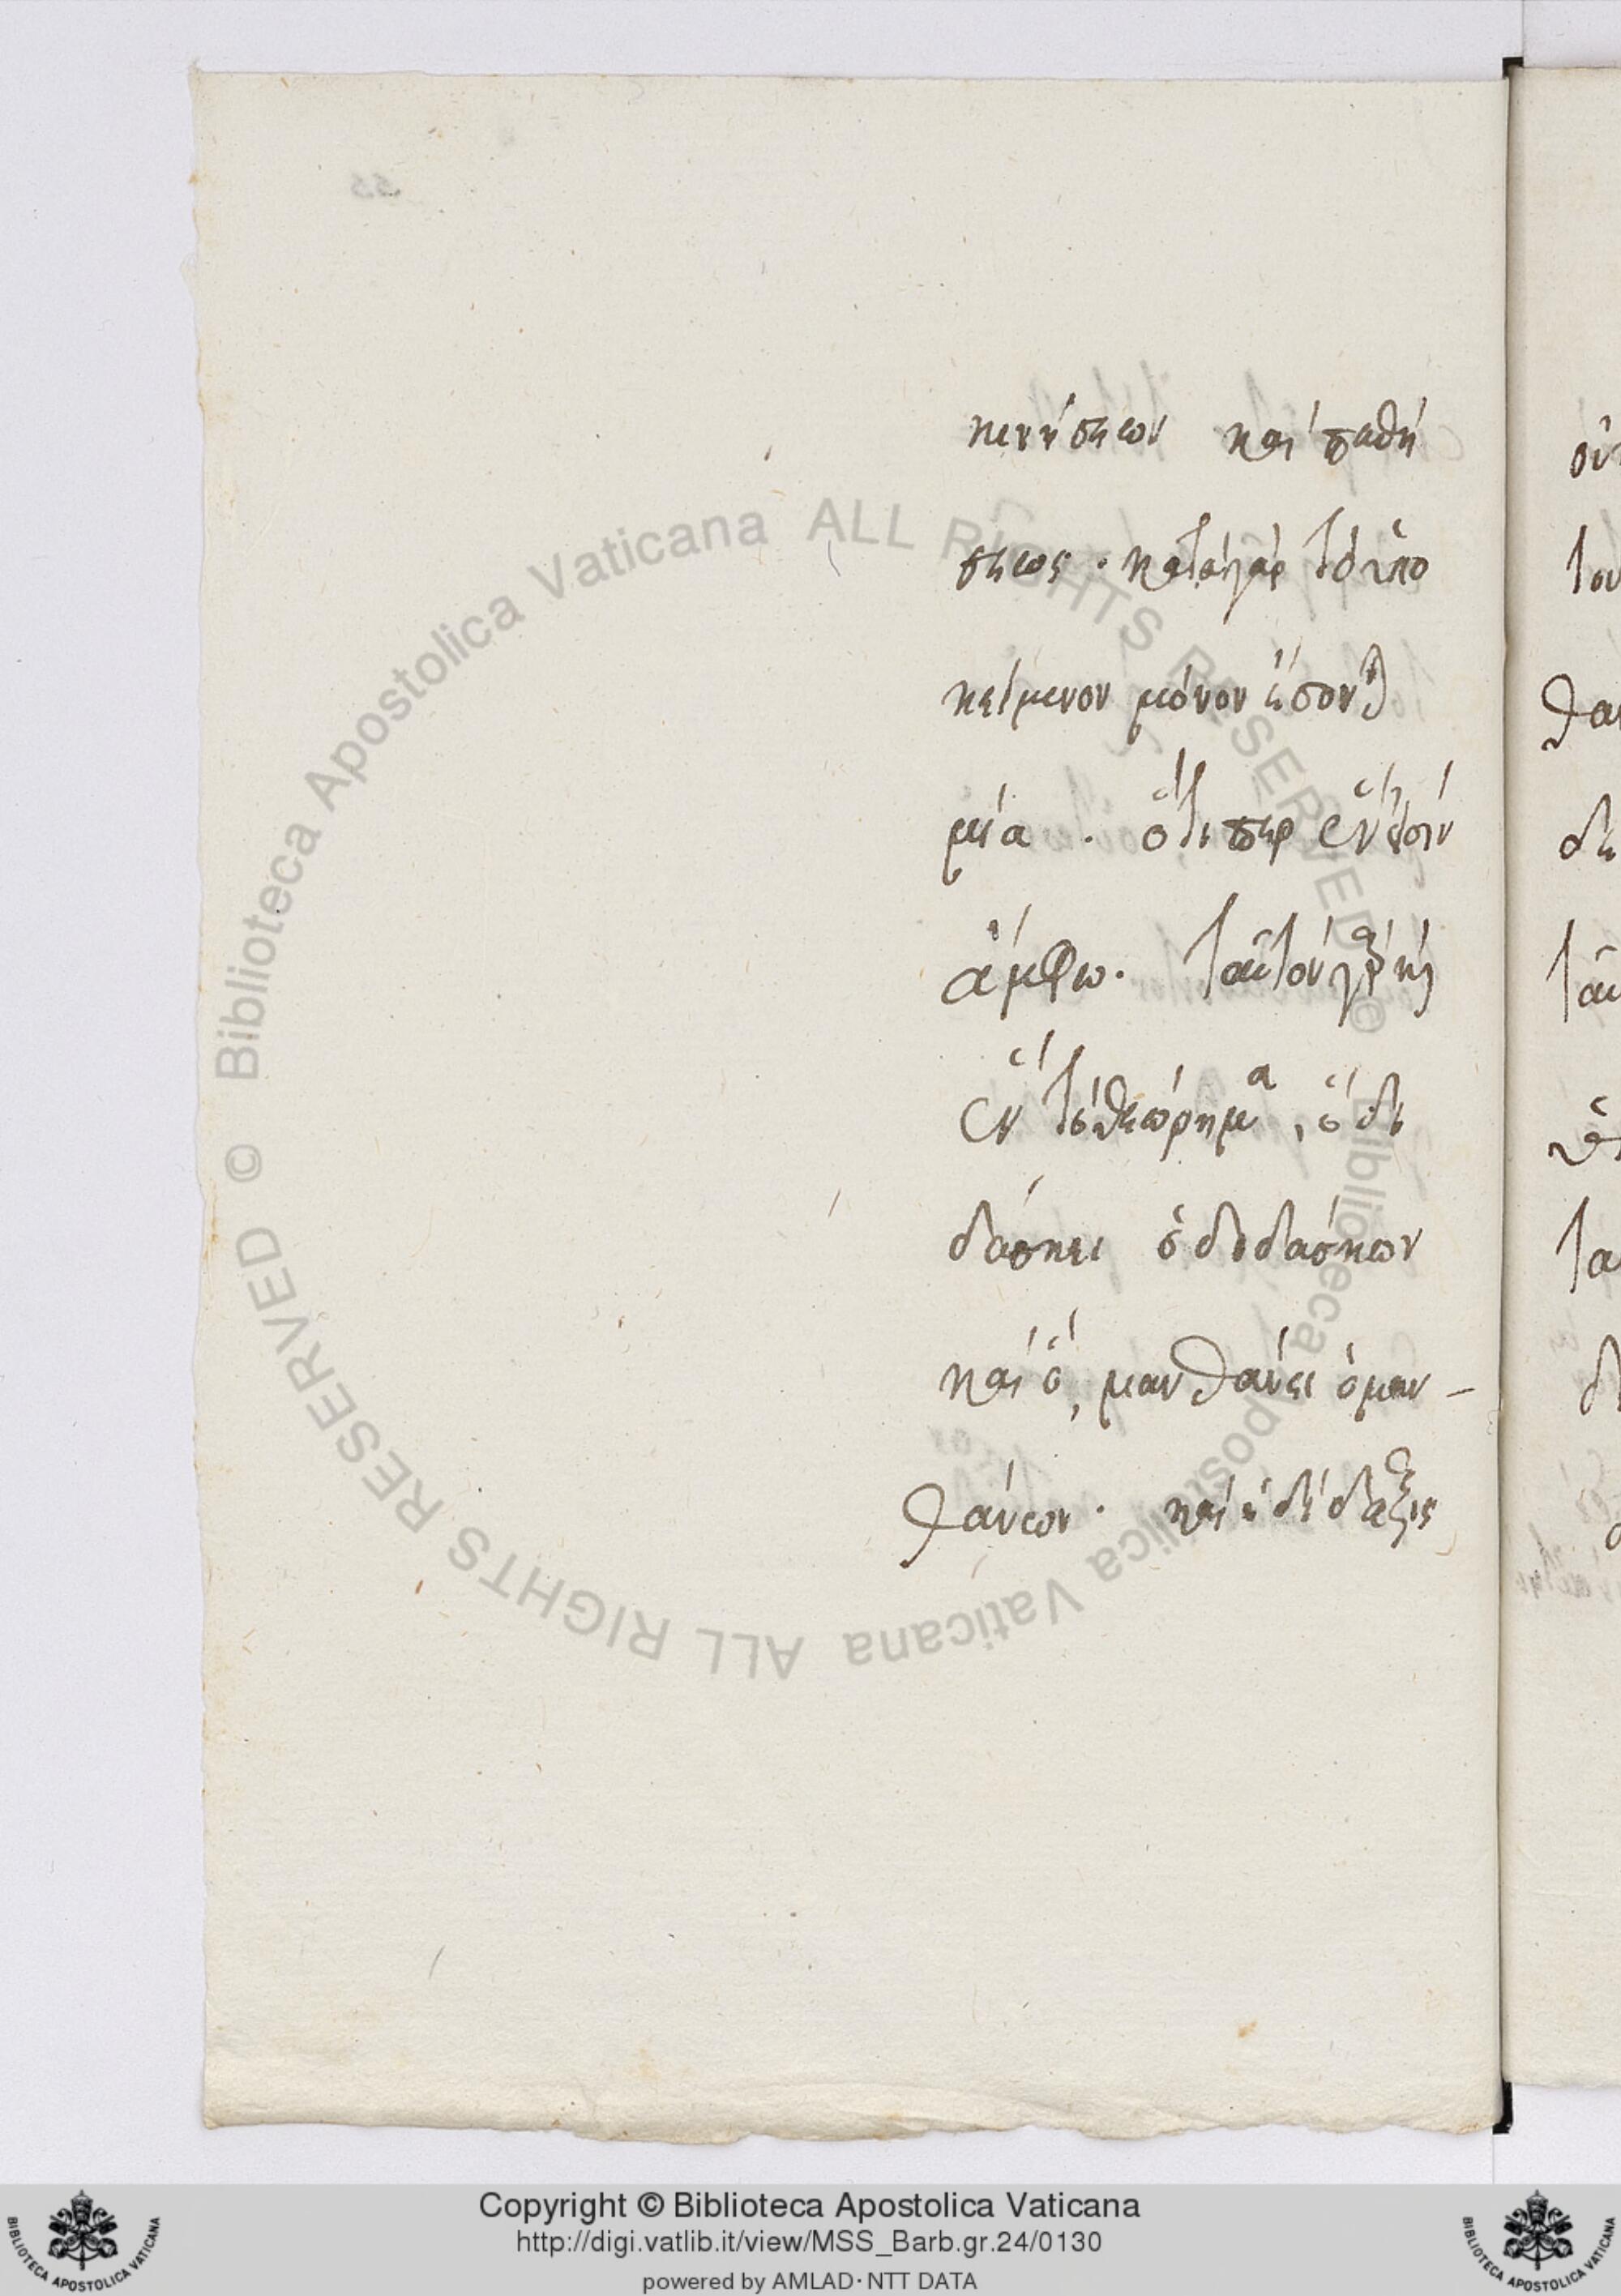 κινήσεων καὶ παθή
σεως . κατὰ γὰρ τὸ ὑπο
κείμενον μόνον ἔσον
μία . ὅτι περ ἕν ἐστιν
ἄμφω . ταυτὸν γὰρ καὶ
ἓν τὸ θεώρημα , ὃ δι
δάσκει ὁ διδάσκων
καὶ ὃ , μανθάνει ὁ μαν -
θάνων . καὶ ἡ δίδαξις
Copyright © Biblioteca Apostolica Vaticana
http://digi.vatlib.it/view/MSS_Barb.gr.24/0130
powered by AMLAD · NTT DATA
© Biblioteca Apostolica Vaticana ALL RIGHTS RESERVED
© Biblioteca Apostolica Vaticana ALL RIGHTS RESERVED
BIBLIOTECA APOSTOLICA VATICANA
BIBLIOTECA APOSTOLICA VATICANA